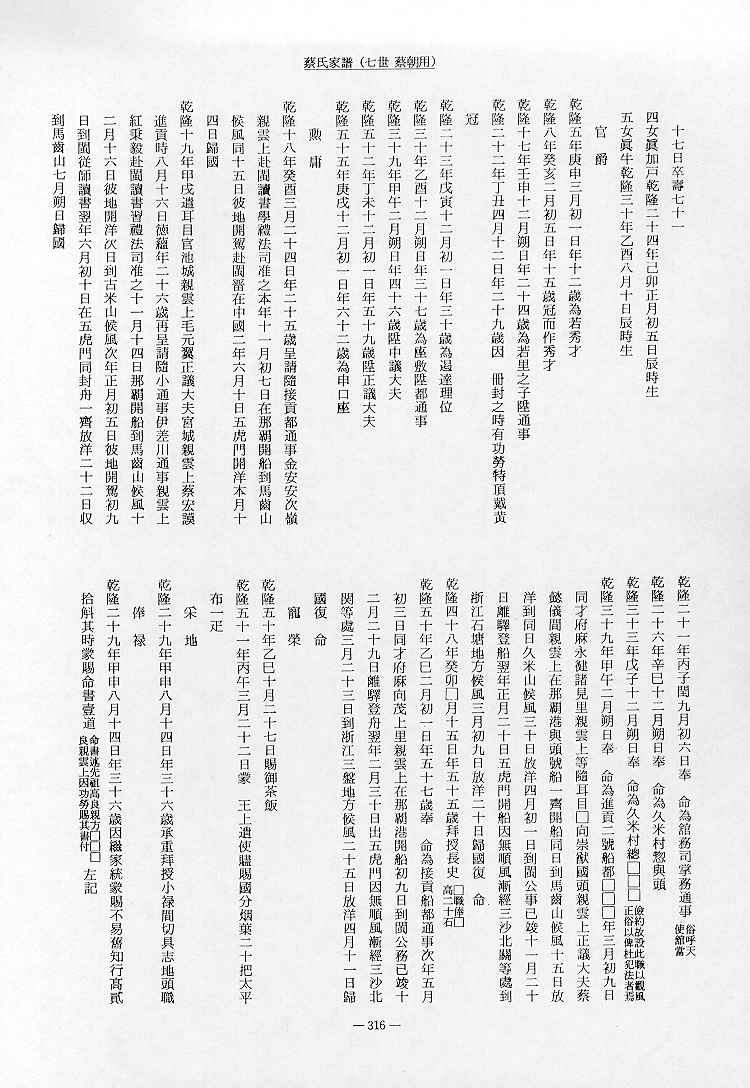 蔡氏家譜（七世 蔡朝用）
十七日卒壽七十一
四女眞加戸乾隆二十四年己卯正月初五日辰時生
五女眞牛乾隆三十年乙酉八月十日辰時生
官爵
乾隆五年庚申三月初一日年十二歳為若秀才
乾隆八年癸亥二月初五日年十五歳冠而作秀才
乾隆十七年壬申十二月朔日年二十四歳為若里之子陞通事
乾隆二十二年丁丑四月十二日年二十九歳因　冊封之時有功勞特頂戴黃
冠
乾隆二十三年戊寅十二月初一日年三十歳為遏達理位
乾隆三十年乙酉十二月朔日年三十七歳為座敷陞都通事
乾隆三十九年甲午二月朔日年四十六歳陞中議大夫
乾隆五十二年丁未十二月初一日年五十九歳陞正議大夫
乾隆五十五年庚戌十二月初一日年六十二歳為申口座
勲庸
乾隆十八年癸酉三月二十四日年二十五歳呈請隨接貢都通事金安安次嶺
親雲上赴閩讀書學禮法司准之本年十一月初七日在那覇開船到馬齒山
候風同十五日彼地開駕赴閩畱在中國二年六月十日五虎門開洋本月十
四日歸國
乾隆十九年甲戌遣耳目官池城親雲上毛元翼正議大夫宮城親雲上蔡宏謨
進貢時八月十六日德蘊年二十六歳再呈請隨小通事伊差川通事親雲上
紅秉毅赴閩讀書習禮法司准之十一月十四日那覇開船到馬齒山候風十
二月十六日彼地開洋次日到古米山候風次年正月初五日彼地開駕初九
日到閩従師讀書翌年六月初十日在五虎門同封舟一齊放洋二十二日収
到馬齒山七月朔日歸國
乾隆二十一年丙子閏九月初六日奉　命為舘務司掌務通事 俗呼天使舘當
乾隆二十六年辛巳十二月朔日奉　命為久米村惣與頭
乾隆三十三年戊子十二月朔日奉　命為久米村總□□□ 儉約故設此職以觀風正俗以俾杜犯法者焉
乾隆三十九年甲午二月朔日奉　命為進貢二號船都□□□年三月初九日
同才府麻永健諸見里親雲上等隨耳目□向崇猷國頭親雲上正議大夫蔡
懿儀間親雲上在那覇港與頭號船一齊開船同日到馬齒山候風十五日放
洋到同日久米山候風三十日放洋四月初一日到閩公事已竣十一月二十
日離驛登船翌年正月二十日五虎門開船因無順風漸經三沙北關等處到
浙江石塘地方候風三月初九日放洋二十日歸國復　命
乾隆四十八年癸卯□月十五日年五十五歳拜授長史 □職俸□高二十石
乾隆五十年乙巳二月初一日年五十七歳奉　命為接貢船都通事次年五月
初三日同才府麻向茂上里親雲上在那覇港開船初九日到閩公務已竣十
二月二十九日離驛登舟翌年二月三十日出五虎門因無順風漸經三沙北
関等處三月二十三日到浙江三盤地方候風二十五日放洋四月十一日歸
國復　命
寵榮
乾隆五十年乙巳十月二十七日賜御茶飯
乾隆五十一年丙午三月二十二日蒙　王上遣使賜國分烟葉二十把太平
布一疋
采地
乾隆二十九年甲申八月十四日年三十六歳承重拜授小禄間切具志地頭職
俸禄
乾隆二十九年甲申八月十四日年三十六歳因繼家統蒙賜不易舊知行髙貳
拾斛其時蒙賜命書壹道 命書述先祖高良親方□□□良親雲上因功勞賜其書付 左記
—316—